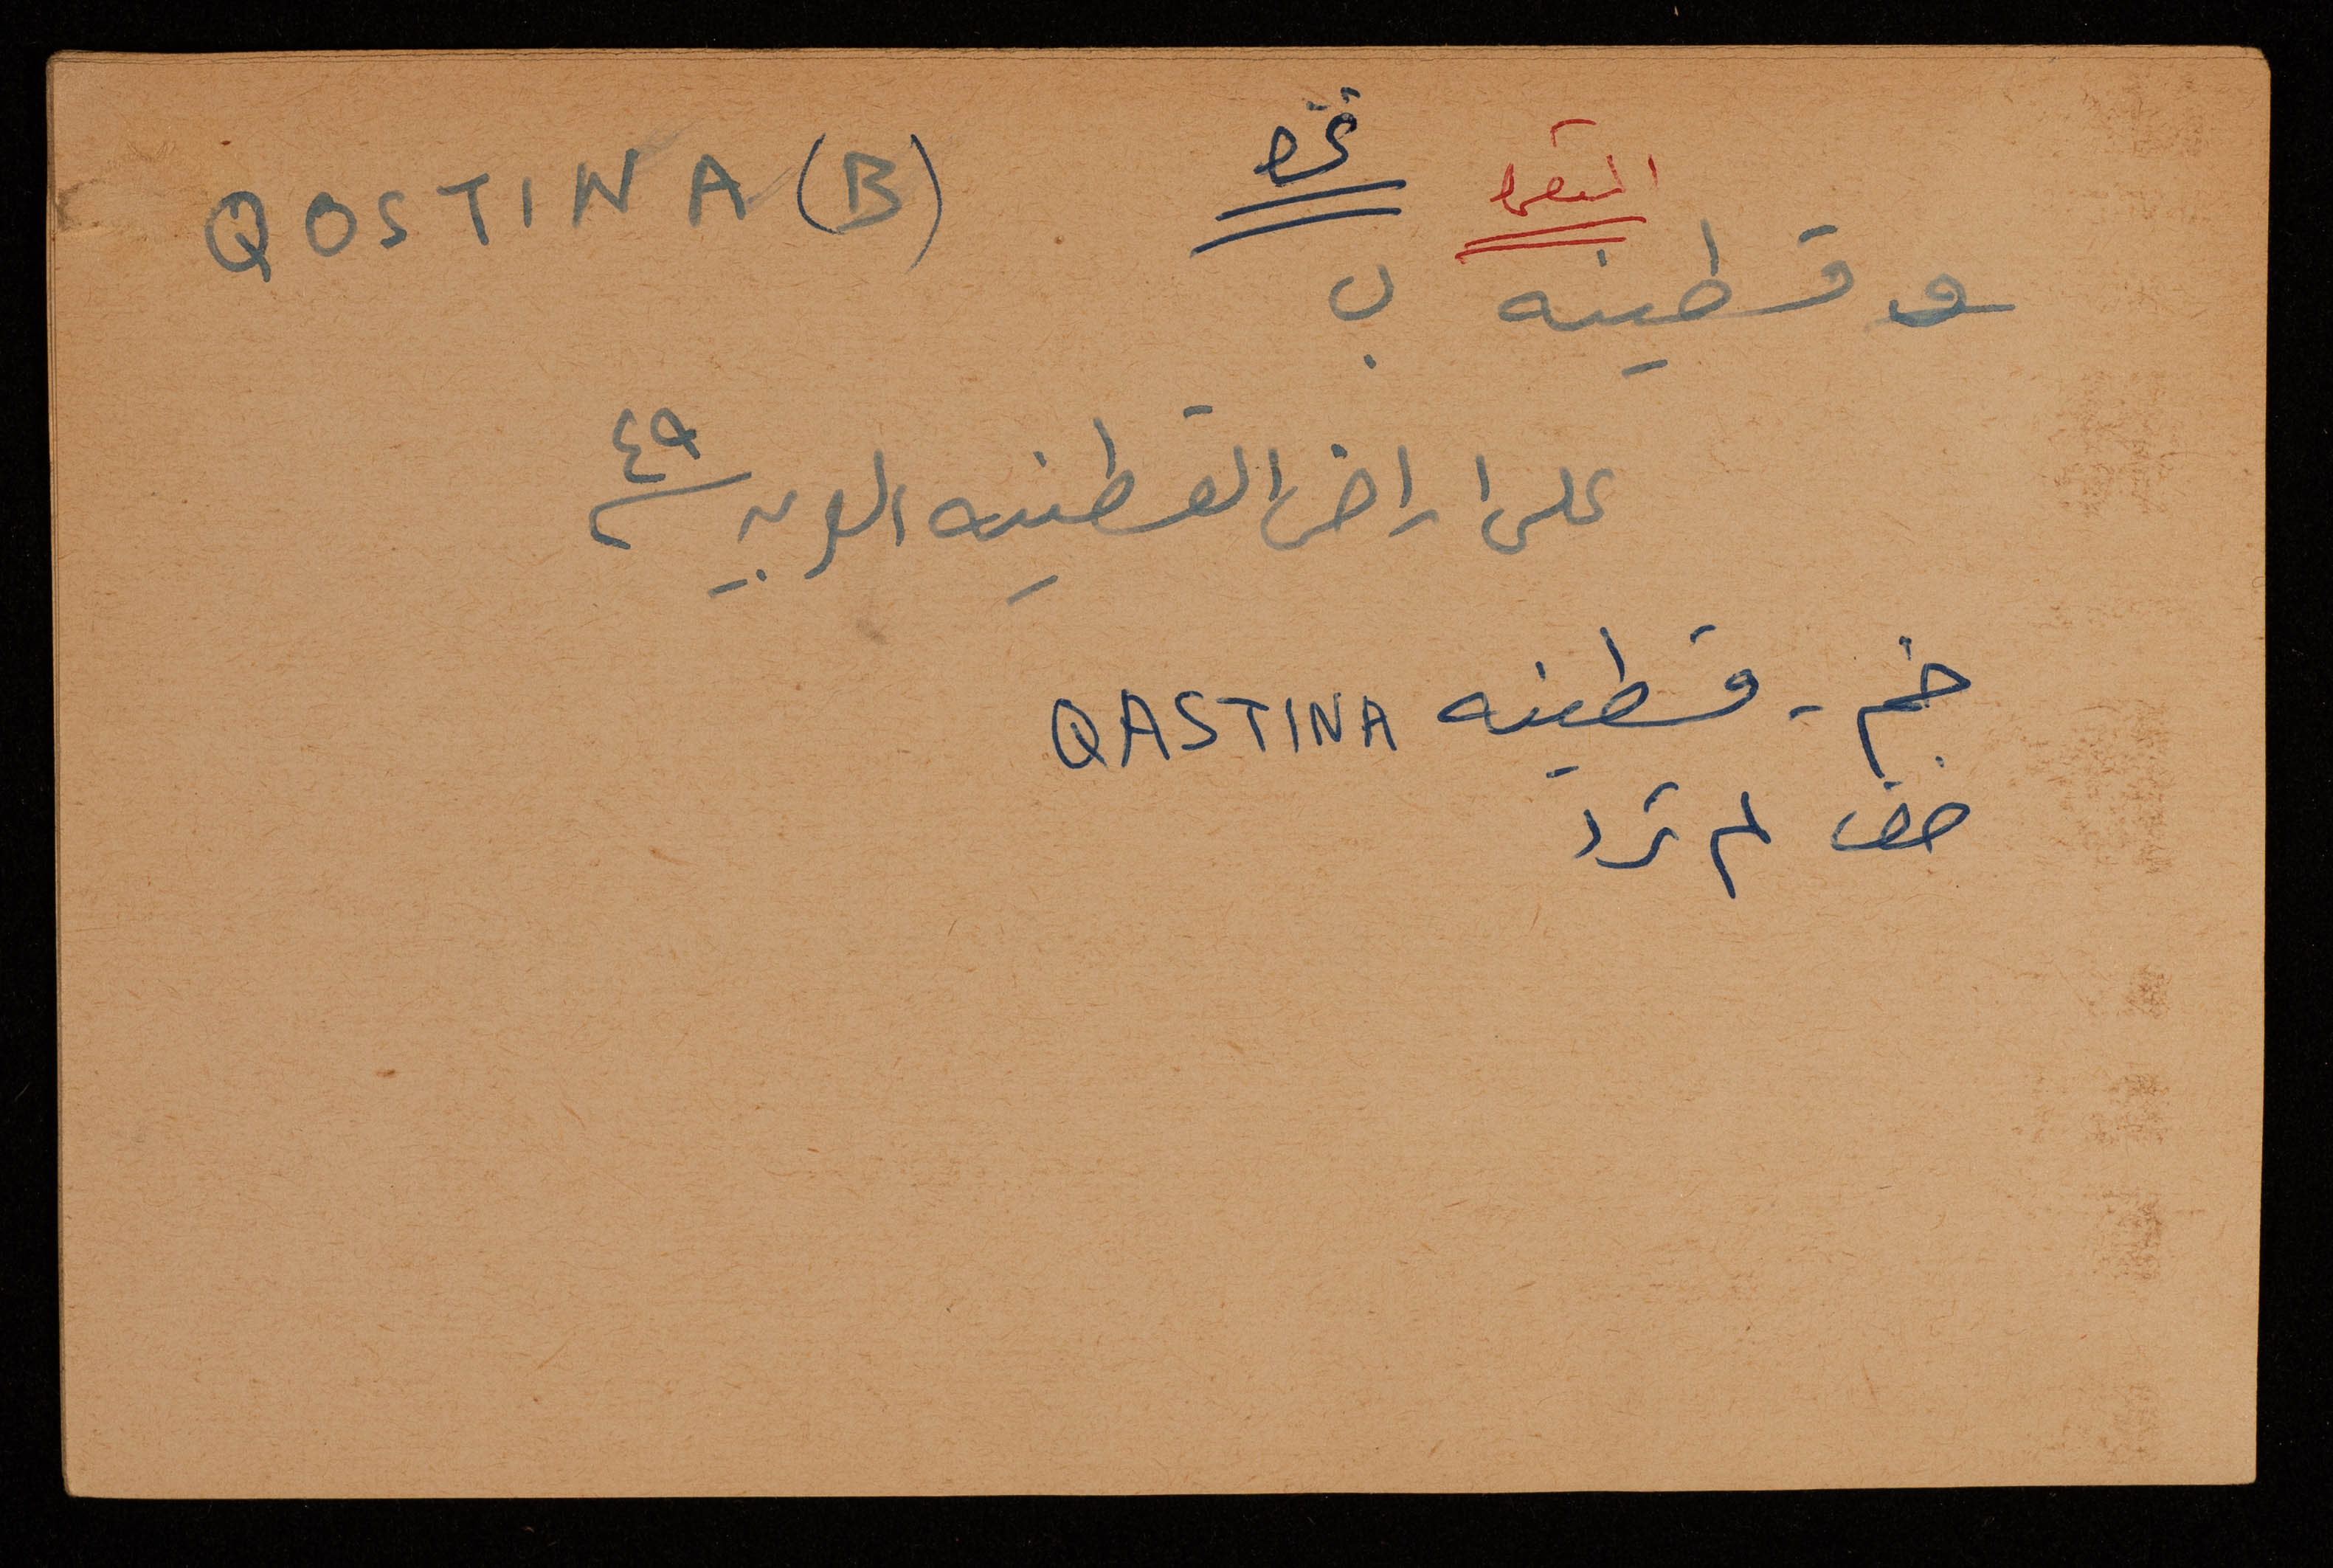 QOSTINA (B)
غزه
و قسطينه ب
على اراضي القسطينه العربيه ٤٩
خم - قسطينه QASTINA
صف لم ترد